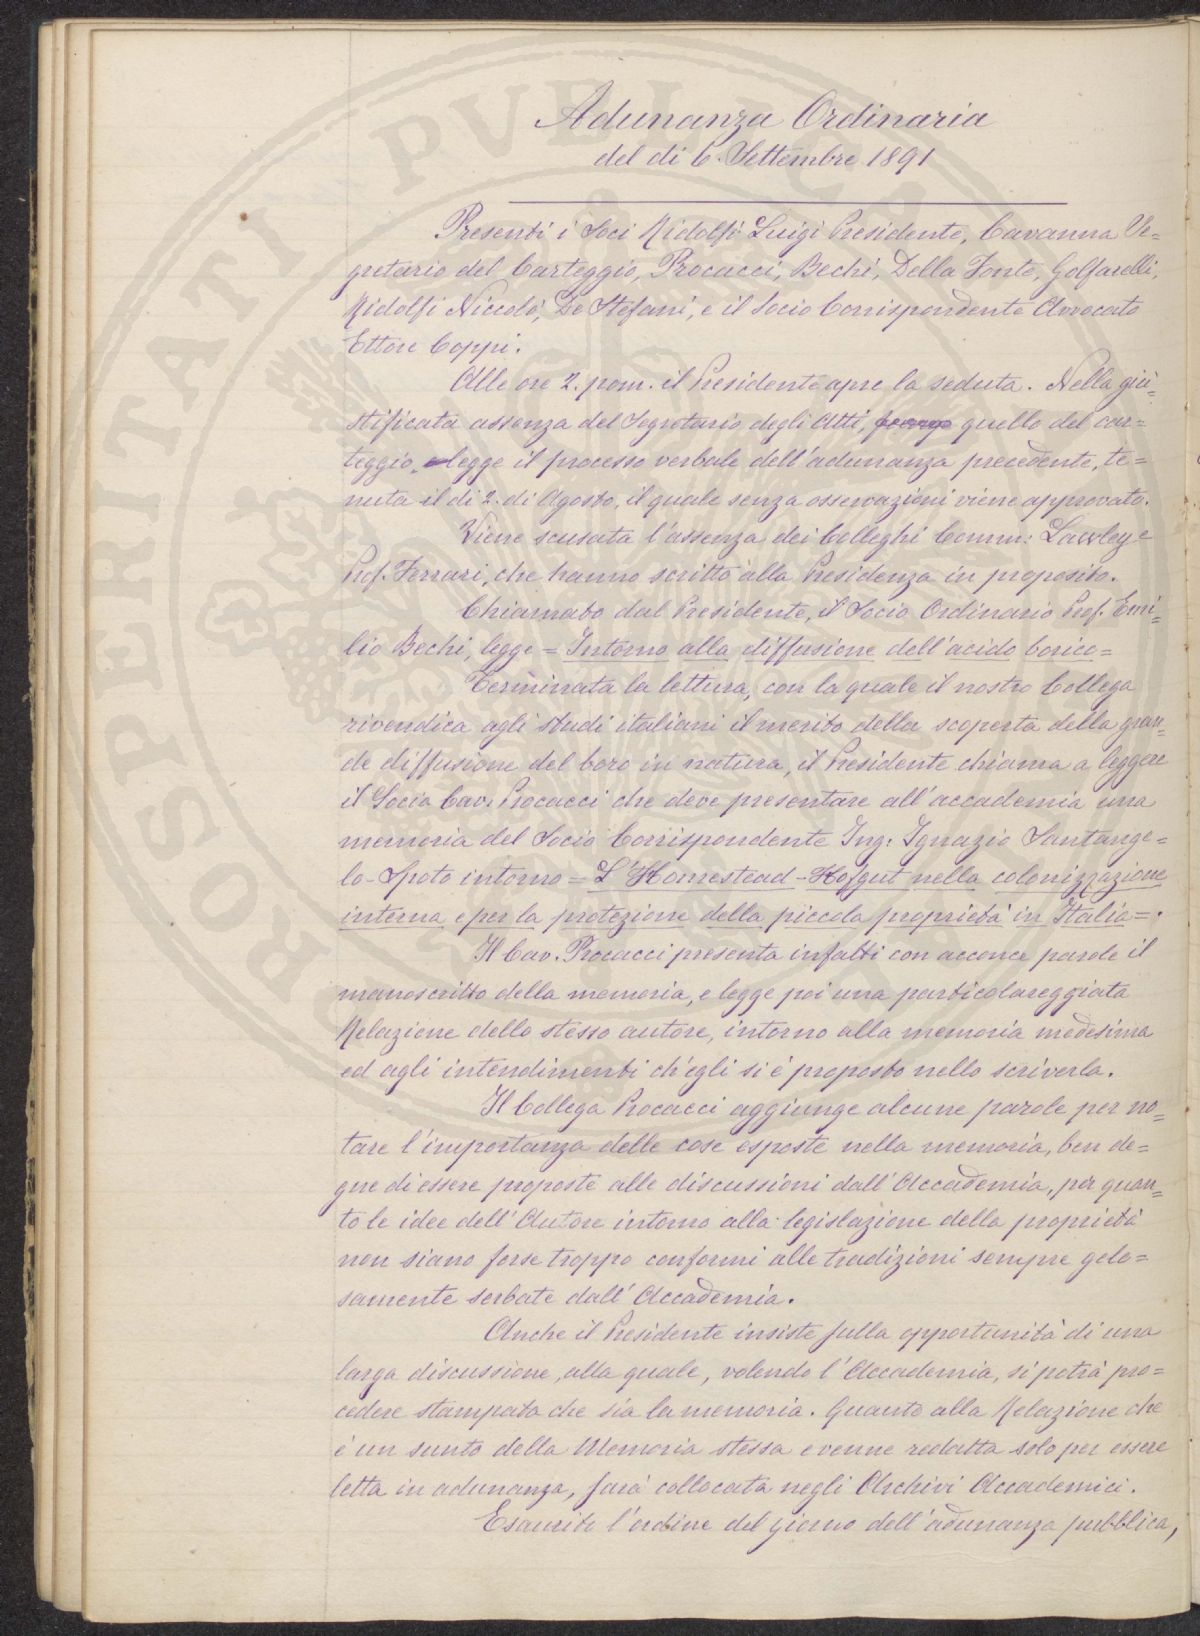 Adunanza Ordinaria
del dì 6. Settembre 1891
Presenti i Soci Ridolfi Luigi Presidente, Cavanna Se=
gretario del Carteggio, Procacci, Bechi, Della Fonte, Golfarelli,
Ridolfi Niccolò, De Stefani, e il Socio Corrispondente Avvocato
Ettore Coppi.
Alle ore 2. pom. il Presidente apre la seduta. Nella giu=
stificata assenza del Segretario degli Atti, quello del car=
teggio, legge il processo verbale dell'adunanza precedente, te=
nuta il dì 2. di Agosto, il quale senza osservazioni viene approvato.
Viene scusata l'assenza dei Colleghi Comm: Lawley e
Prof. Ferrari, che hanno scritto alla Presidenza in proposito.
Chiamato dal Presidente, il Socio Ordinario Prof. Emi=
lio Bechi, legge = Intorno alla diffusione dell'acido borico =
Terminata la lettura, con la quale il nostro Collega
rivendica agli studi italiani il merito della scoperta della gran=
de diffusione del boro in natura, il Presidente chiama a leggere
il Socio Cav. Procacci che deve presentare all'accademia una
memoria del Socio Corrispondente Ing: Ignazio Santange=
lo-Spoto intorno = L'Homestead-Hofgut nella colonizzazione
interna e per la protezione della piccola proprietà in Italia =.
Il Cav. Procacci presenta infatti con acconce parole il
manoscritto della memoria, e legge poi una particolareggiata
Relazione dello stesso autore, intorno alla memoria medesima
ed agli intendimenti ch'egli si è proposto nello scriverla.
Il Collega Procacci aggiunge alcune parole per no=
tare l'importanza delle cose esposte nella memoria, ben de=
gne di essere proposte alle discussioni dall'Accademia, per quan=
to le idee dell'Autore intorno alla legislazione della proprietà
non siano forse troppo conformi alle tradizioni sempre gelo=
samente serbate dall'Accademia.
Anche il Presidente insiste sulla opportunità di una
larga discussione, alla quale, volendo l'Accademia, si potrà pro=
cedere stampata che sia la memoria. Quanto alla Relazione che
è un sunto della Memoria stessa e venne redatta solo per essere
letta in adunanza, sarà collocata negli Archivi Accademici.
Esaurito l'ordine del giorno dell'adunanza pubblica,
PROSPERITATI PVBLICAE